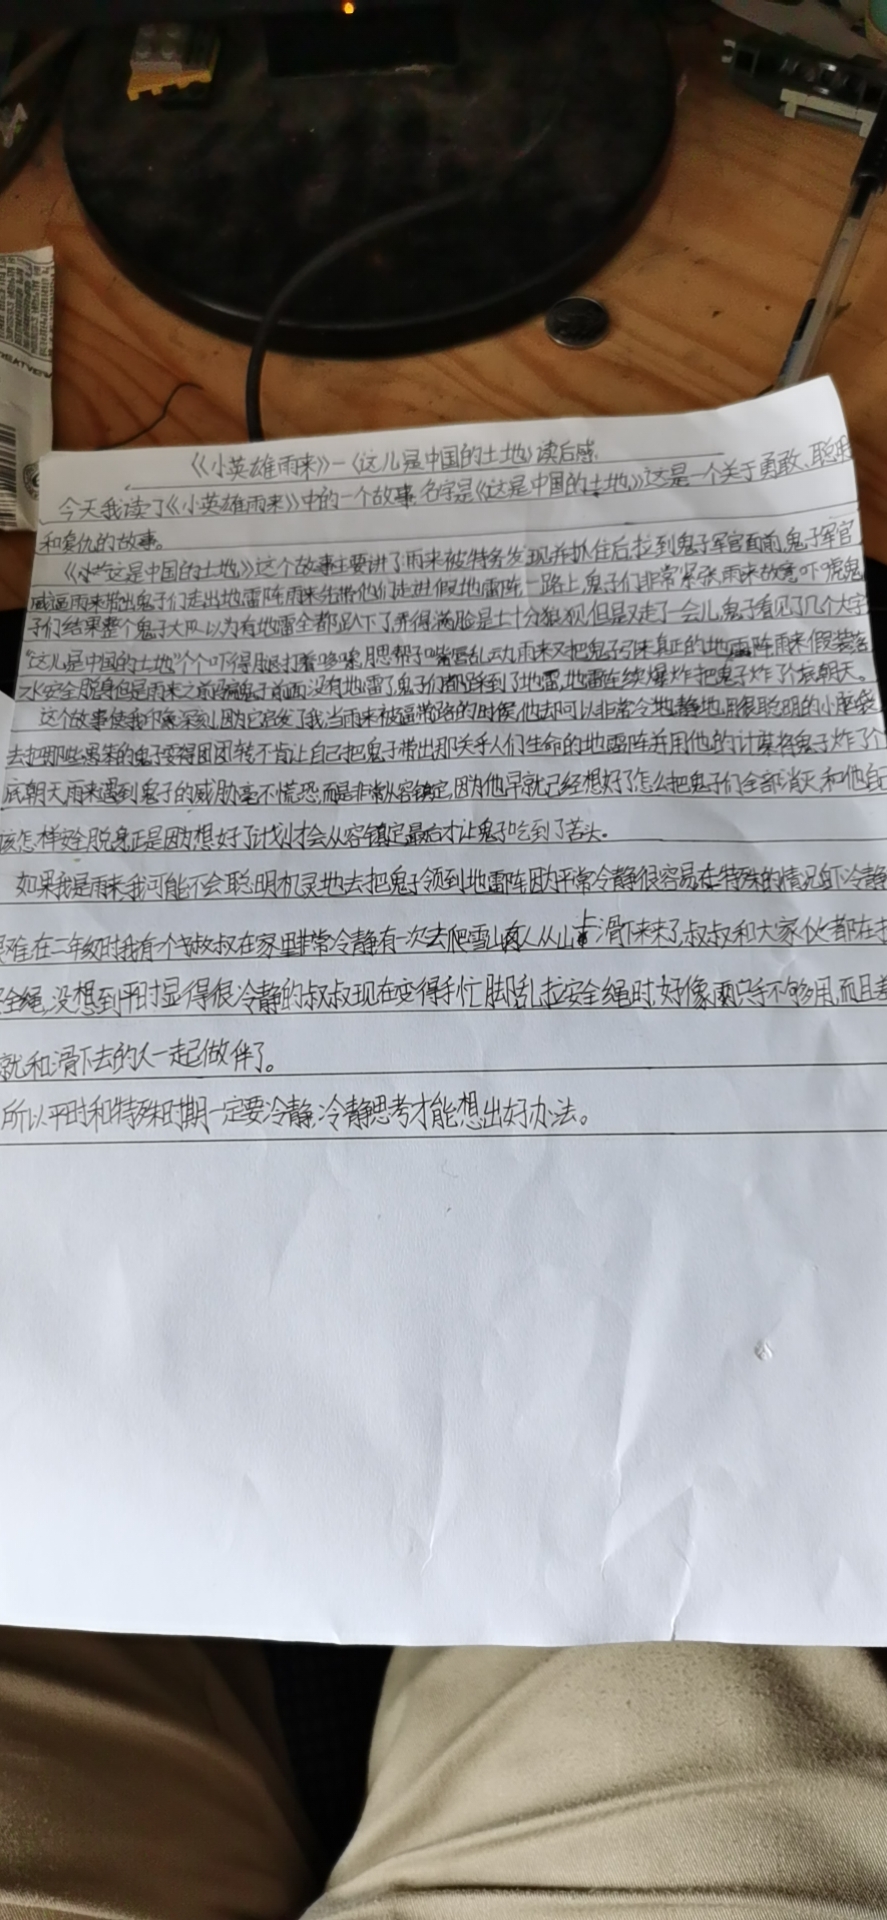 《《小英雄雨来》—《这儿是中国的土地》读后感
今天我读了《小英雄雨来》中的一个故事,名字是《这是中国的土地》这是一个关于勇敢、聪明
和复仇的故事。
这是中国的土地》这个故事主要讲了雨来被特务发现并抓住后,拉到鬼子军官面前,鬼子军官
威逼雨来带出鬼子们走出地雷阵雨来先带他们走进假地雷阵一路上,鬼子们非常紧张雨来故意吓唬鬼
子们结果整个鬼子大队以为有地雷全都趴下了弄得满脸是土十分狼狈,但是又走了一会儿,鬼子看见了几个大字
“这儿是中国的土地”个个吓得腿打着哆嗦,腮帮子嘴唇乱动雨来又把鬼子引来真正的地雷阵雨来假装落
水安全脱身但是雨来之前骗鬼子前面没有地雷了鬼子们都踩到了地雷,地雷连续爆炸把鬼子炸了个底朝天。
这个故事使我印象深刻,因为它启发了我,当雨来被逼带路的时候,他却可以非常冷地静地用很聪明的小脑袋
去把那些愚笨的鬼子耍得团团转不肯让自己把鬼子带出那关乎人们生命的地雷阵并用他的计谋将鬼子炸了个
底朝天雨来遇到鬼子的威胁毫不慌恐,而是非常从容镇定,因为他早就已经想好了怎么把鬼子们全部消灭,和他自己
该怎样安全脱身正是因为想好了计划才会从容镇定最后才让鬼子吃到了苦头。
如果我是雨来,我可能不会聪明机灵地去把鬼子领到地雷阵因为平常冷静很容易,在特殊的情况下冷静
难,在二年级时我有个叔叔在家里非常冷静有一次去爬雪山有人从山上滑下来了,叔叔和大家伙都在拉
安全绳,没想到平时显得很冷静的叔叔现在变得手忙脚乱,拉安全绳时,好像两只手不够用,而且差
就和滑下去的人一起做伴了。
所以平时和特殊时期一定要冷静,冷静思考才能想出好办法。